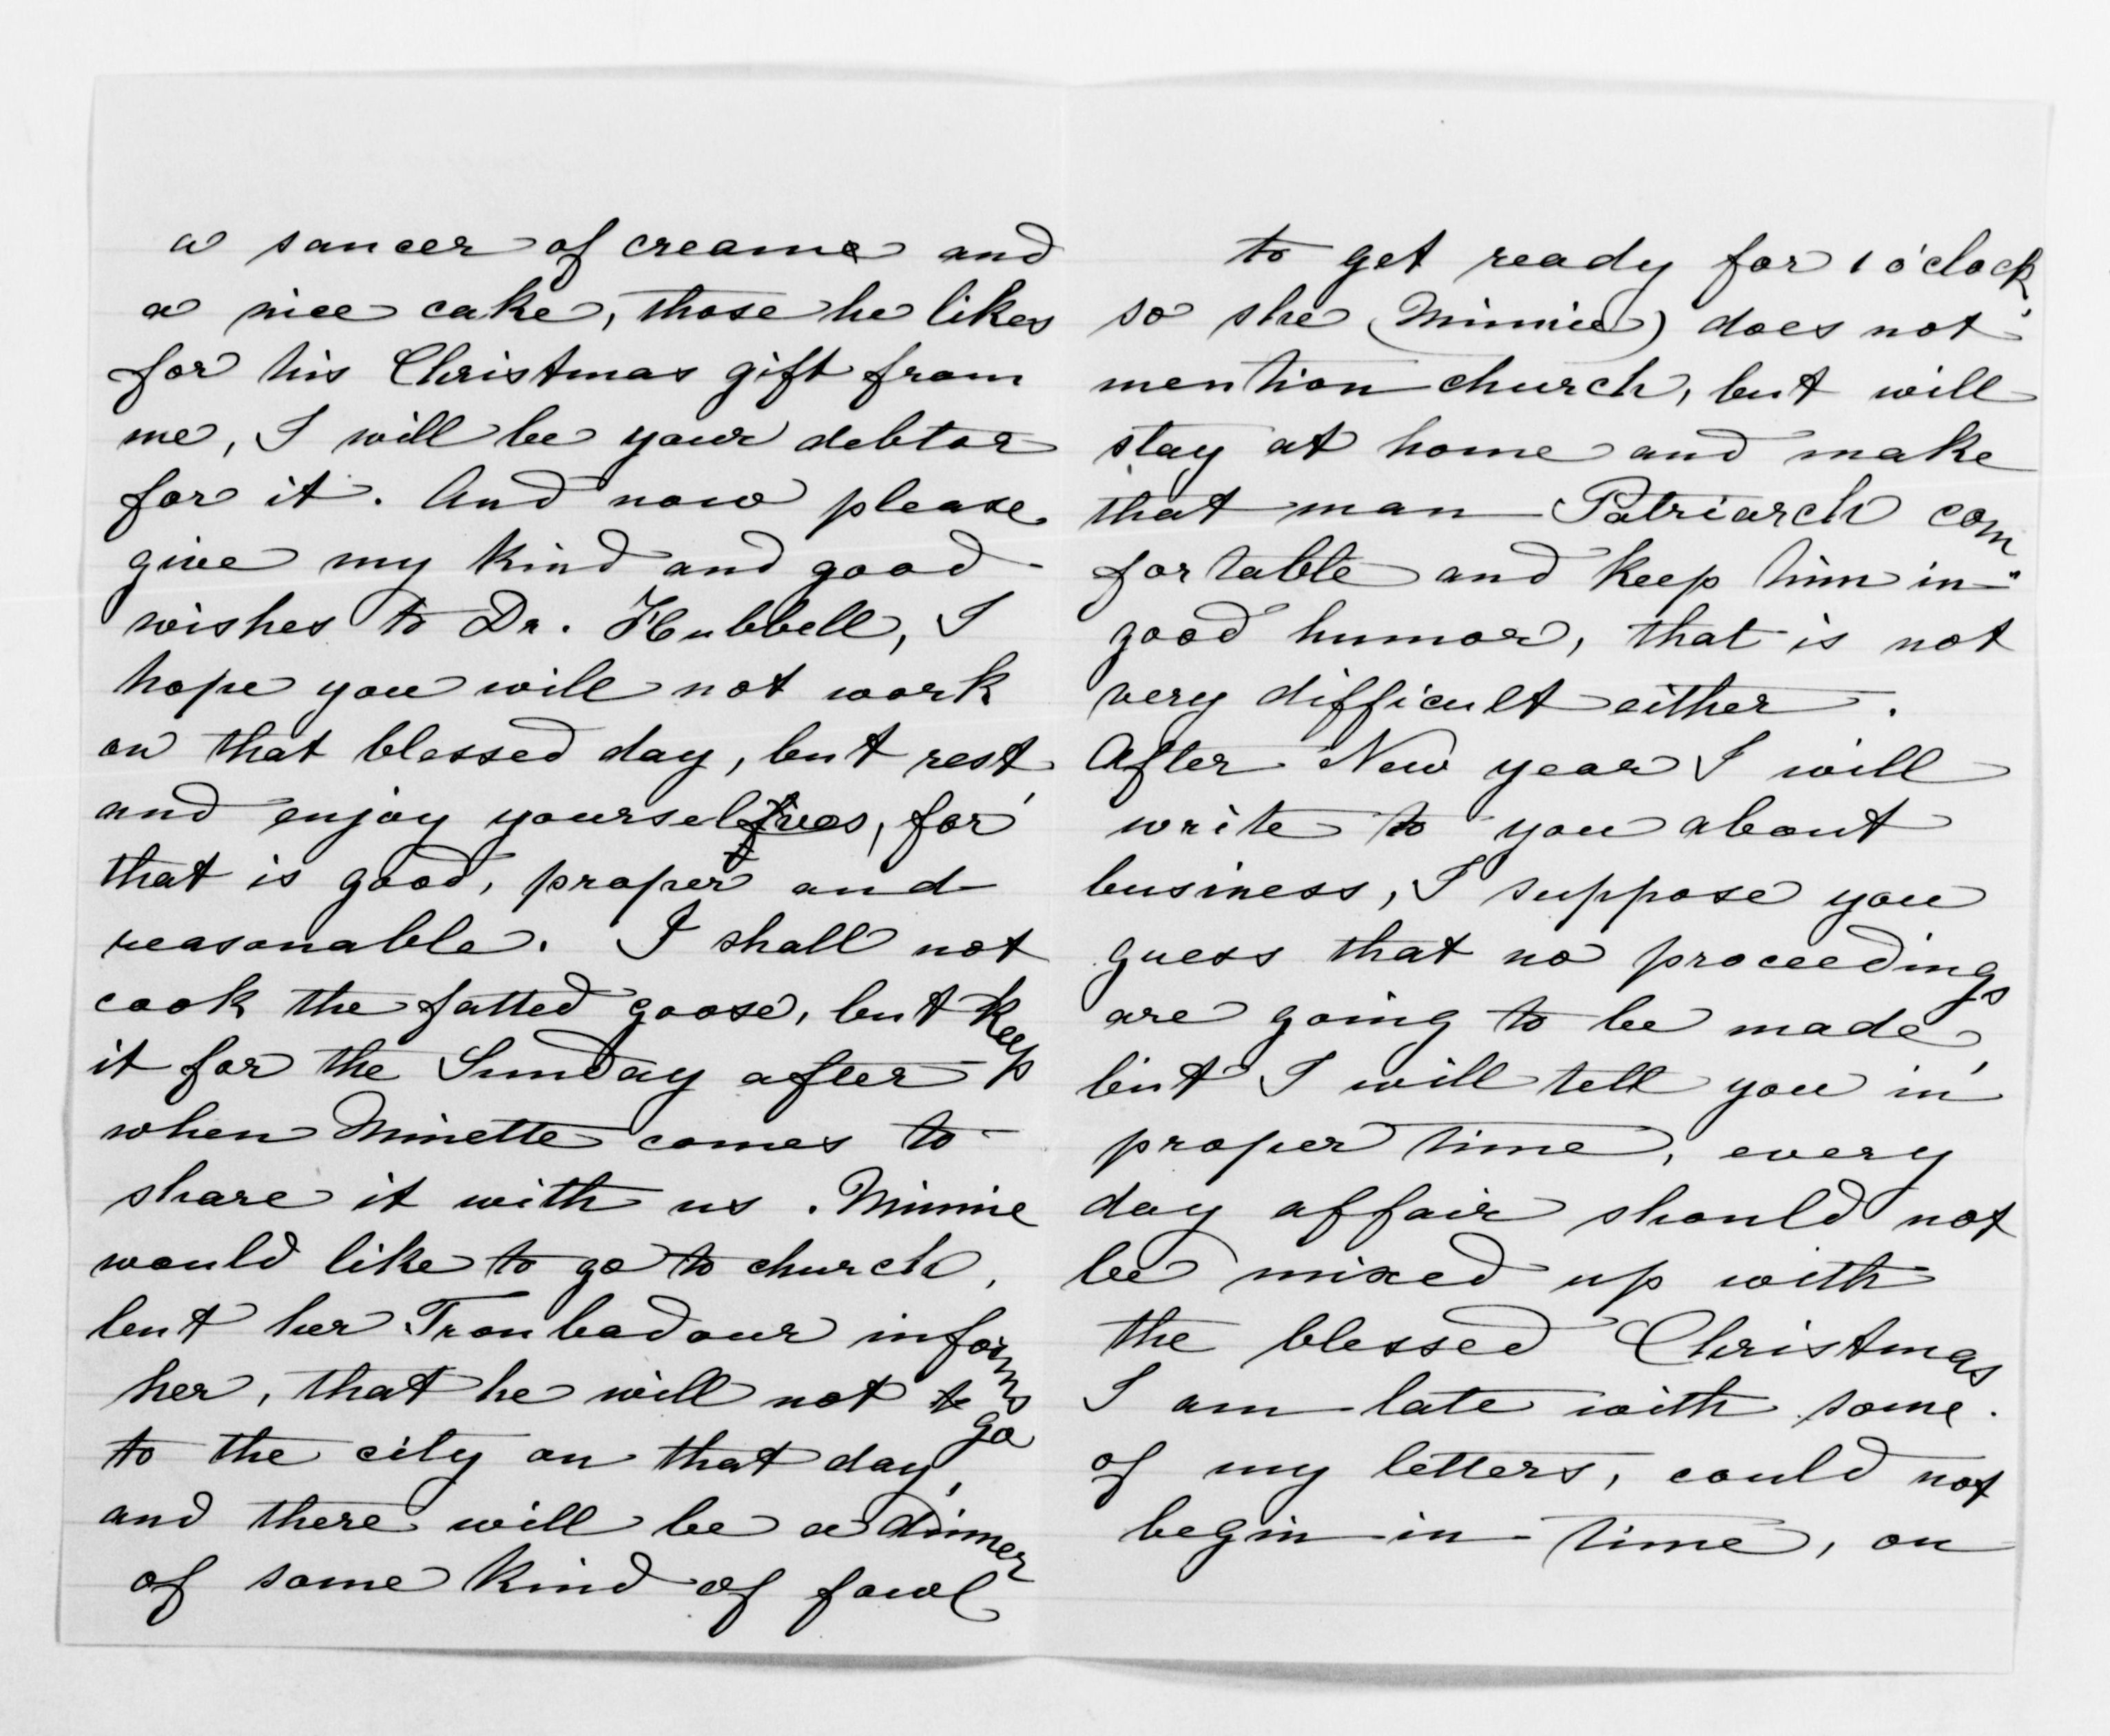 a saucer of creame and
a nice cake, those he likes
for his Christmas gift from
me, I will be your debtor
for it. And now please
give my kind and good
wishes to Dr. Hubbell, I
hope you will not work
on that blessed day, but rest,
and enjoy yourselves, for
that is good, proper and
reasonable. I shall not
cook the fatted goose, but keep
it for the Sunday after
when Minette comes to
share it with us. Minnie
would like to go to church,
but her Troubadour informs
her, that he will not go
to the city on that day,
and there will be a dinner
of some kind of fowl
to get ready for 1 o'clock
so she (Minnie) does not
mention church, but will
stay at home and make
that man Patriarch com
fortable and keep him in
good humor, that is not
very difficult either.
After New year I will
write to you about
business, I suppose you
guess that no proceedings
are going to be made,
but I will tell you in
proper time, every
day affair should not
be mixed up with
the blessed Christmas
I am late with some
of my letters, could not
begin in time, on